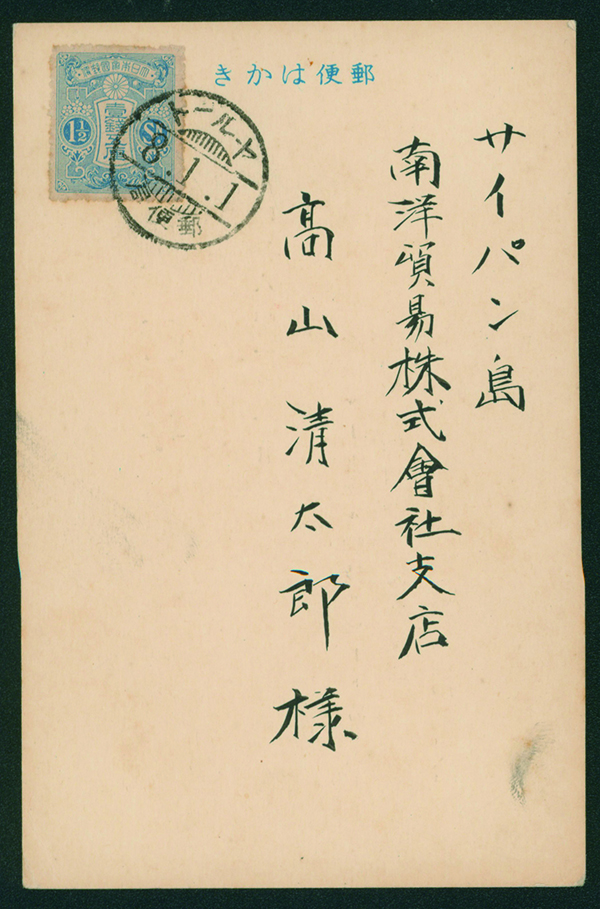 郵便はかき
サイパン島
南洋貿易株式會社支店
高山清太郎様
大日本帝國郵便
壹錢五厘
1½ Sn
ヤルート
.1.1
郵便局